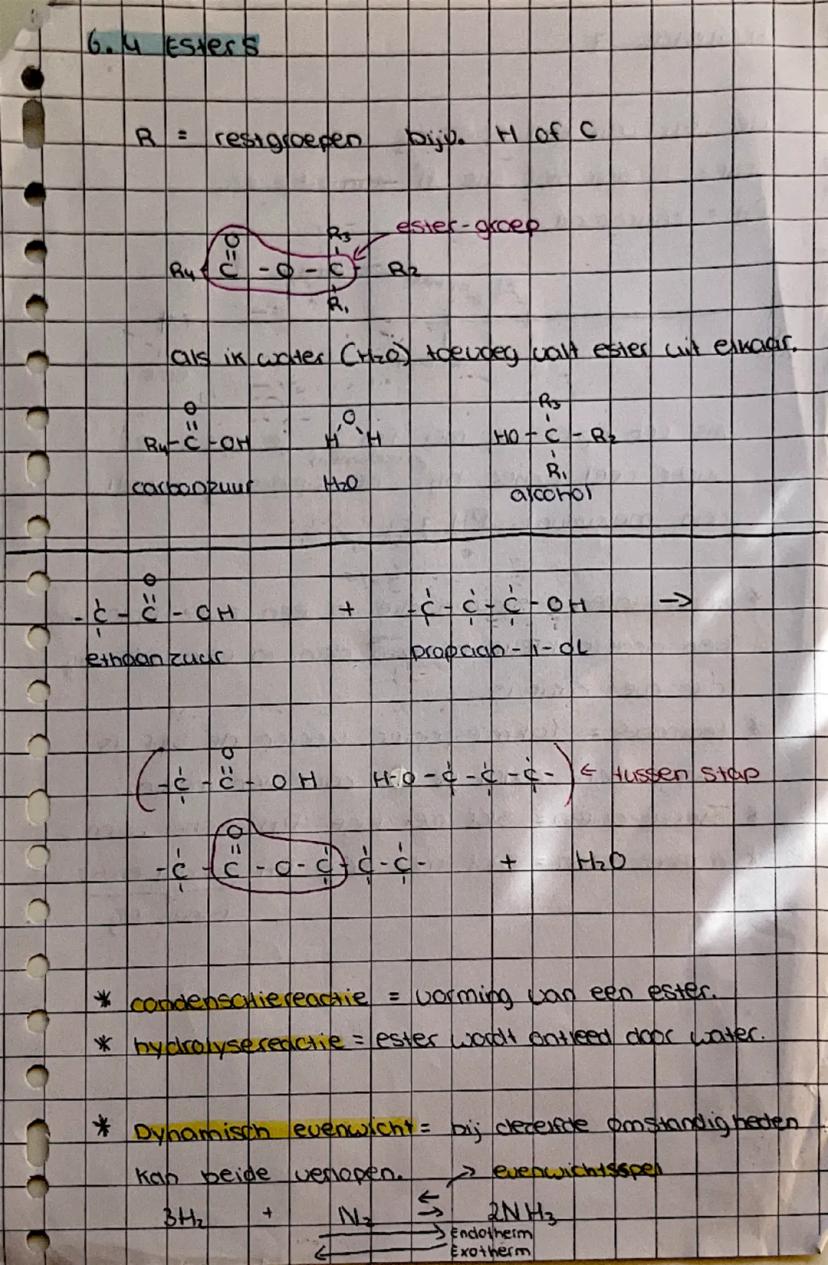 6.4 Esters
R = restgroepen bijv. H of C
ester-groep
O R3
R4 C - O - C - R2
R1
als ik water (H2O) toevoeg valt ester uit elkaar.
O O R3
R4 - C - OH H H HO - C - R2
R1
carbonzuur H2O alcohol
O
- C - C - OH + - C - C - C - OH →
ethaanzuur propaan-1-ol
O
( - C - C - OH H-O - C - C - C - ) ← tussenstap
O
- C - C - O - C - C - C - + H2O
* condensatiereactie = vorming van een ester.
* hydrolysereactie = ester wordt ontleed door water.
* Dynamisch evenwicht = bij dezelfde omstandigheden
kan beide verlopen. → evenwichtsspel
3H2 + N2 ⇆ 2NH3
→ Endotherm
← Exotherm